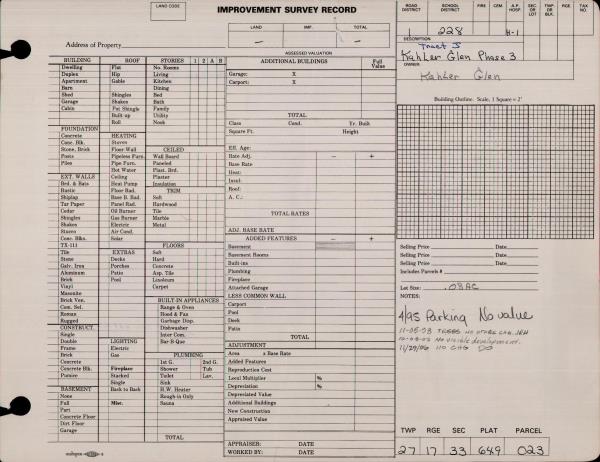 LAND CODE
IMPROVEMENT SURVEY RECORD
LAND IMP. TOTAL
Address of Property
ASSESSED VALUATION
ROAD DISTRICT SCHOOL DISTRICT FIRE CEM. A.P. HOSP. SEC OR LOT TWP. OR BLK RGE. TAX NO.
228 H-1
DESCRIPTION
Tract J
Kahler Glen Phase 3
OWNER
Kahler Glen
Building Outline. Scale, 1 Square = 2'
BUILDING
Dwelling
Duplex
Apartment
Barn
Shed
Garage
Cabin
FOUNDATION
Concrete
Conc. Blk.
Stone, Brick
Posts
Piles
EXT. WALLS
Brd. & Bats
Rustic
Shiplap
Tar Paper
Cedar
Shingles
Shakes
Stucco
Conc. Blks.
TX-111
Tile
Stone
Galv. Iron
Aluminum
Brick
Vinyl
Masonite
Brick Ven.
Com. Sel.
Roman
Rugged
CONSTRUCT.
Single
Double
Frame
Brick
Concrete
Concrete Blk.
Pumice
BASEMENT
None
Full
Part
Concrete Floor
Dirt Floor
Garage
ROOF
Flat
Hip
Gable
Shingles
Shakes
Pat Shingle
Built-up
Roll
HEATING
Stoves
Floor Wall
Pipeless Furn.
Pipe Furn.
Hot Water
Ceiling
Heat Pump
Floor Rad.
Base B. Rad.
Panel Rad.
Oil Burner
Gas Burner
Electric
Air Cond.
Solar
EXTRAS
Decks
Porches
Patio
Pool
LIGHTING
Electric
Gas
Fireplace
Stacked
Single
Back to Back
Misc.
STORIES 1 2 A B
No. Rooms
Living
Kitchen
Dining
Bed
Bath
Family
Utility
Nook
CEILED
Wall Board
Paneled
Plast. Brd.
Plaster
Insulation
TRIM
Soft
Hardwood
Tile
Marble
Metal
FLOORS
Soft
Hard
Concrete
Asp. Tile
Linoleum
Carpet
BUILT-IN APPLIANCES
Range & Oven
Hood & Fan
Garbage Disp.
Dishwasher
Inter Com.
Bar-B-Que
PLUMBING
1st G. 2nd G.
Shower Tub
Toilet Lav.
Sink
H.W. Heater
Rough-in Only
Sauna
TOTAL
ADDITIONAL BUILDINGS Full Value
Garage: X
Carport: X
TOTAL
Class Cond. Yr. Built
Square Ft. Height
Eff. Age:
Rate Adj. - +
Base Rate
Heat:
Insul:
Roof:
A. C.:
TOTAL RATES
ADJ. BASE RATE
ADDED FEATURES - +
Basement
Basement Rooms
Built-ins
Plumbing
Fireplace
Attached Garage
LESS COMMON WALL
Carport
Pool
Deck
Patio
TOTAL
ADJUSTMENT
Area x Base Rate
Added Features
Reproduction Cost
Local Multiplier %
Depreciation %
Depreciated Value
Additional Buildings
New Construction
Appraised Value
APPRAISER: DATE
WORKED BY: DATE
Selling Price Date
Selling Price Date
Selling Price Date
Includes Parcels #
Lot Size: .03AC
NOTES:
4/95 Parking No value
No visible development.
11/29/06 NO CHG
TWP RGE SEC PLAT PARCEL
27 17 33 649 023